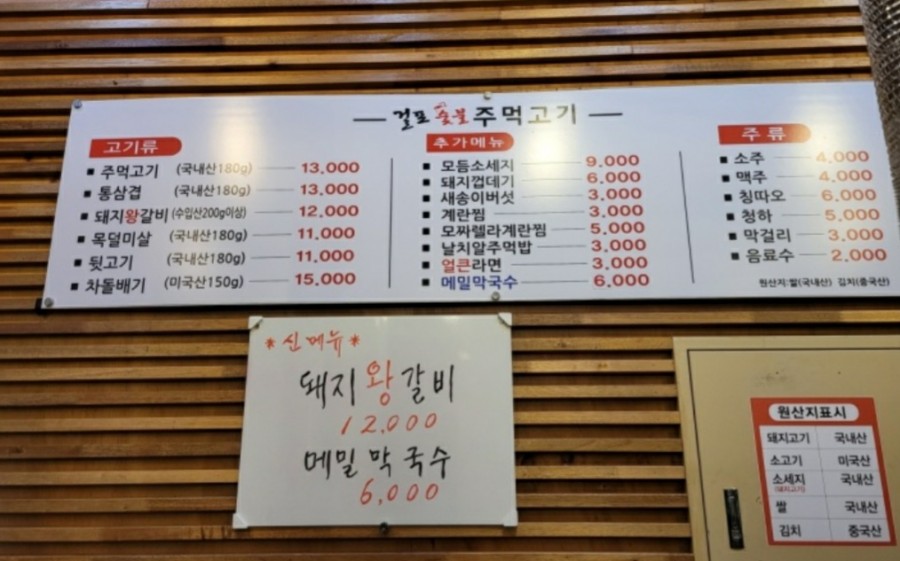 걸포 숯불 주먹고기
고기류
주먹고기 (국내산180g) 13,000
통삼겹 (국내산180g) 13,000
돼지왕갈비 (수입산200g이상) 12,000
목덜미살 (국내산180g) 11,000
뒷고기 (국내산180g) 11,000
차돌배기 (미국산150g) 15,000
추가메뉴
모듬소세지 9,000
돼지껍데기 6,000
새송이버섯 3,000
계란찜 3,000
모짜렐라계란찜 5,000
날치알주먹밥 3,000
얼큰라면 3,000
메밀막국수 6,000
주류
소주 4,000
맥주 4,000
칭따오 6,000
청하 5,000
막걸리 3,000
음료수 2,000
원산지:쌀(국내산) 김치(중국산)
*신메뉴*
돼지왕갈비
12,000
메밀막국수
6,000
원산지표시
돼지고기 국내산
소고기 미국산
소세지 국내산
(돼지고기)
쌀 국내산
김치 중국산